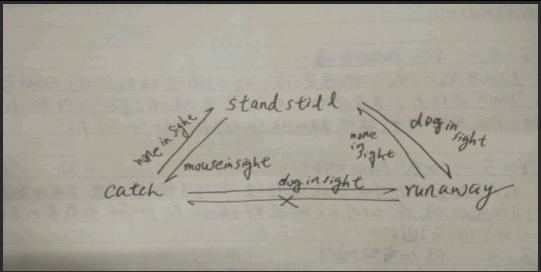 stand still
none in sight
mouse in sight
none
in
sight
dog in
sight
catch
dog in sight
run away